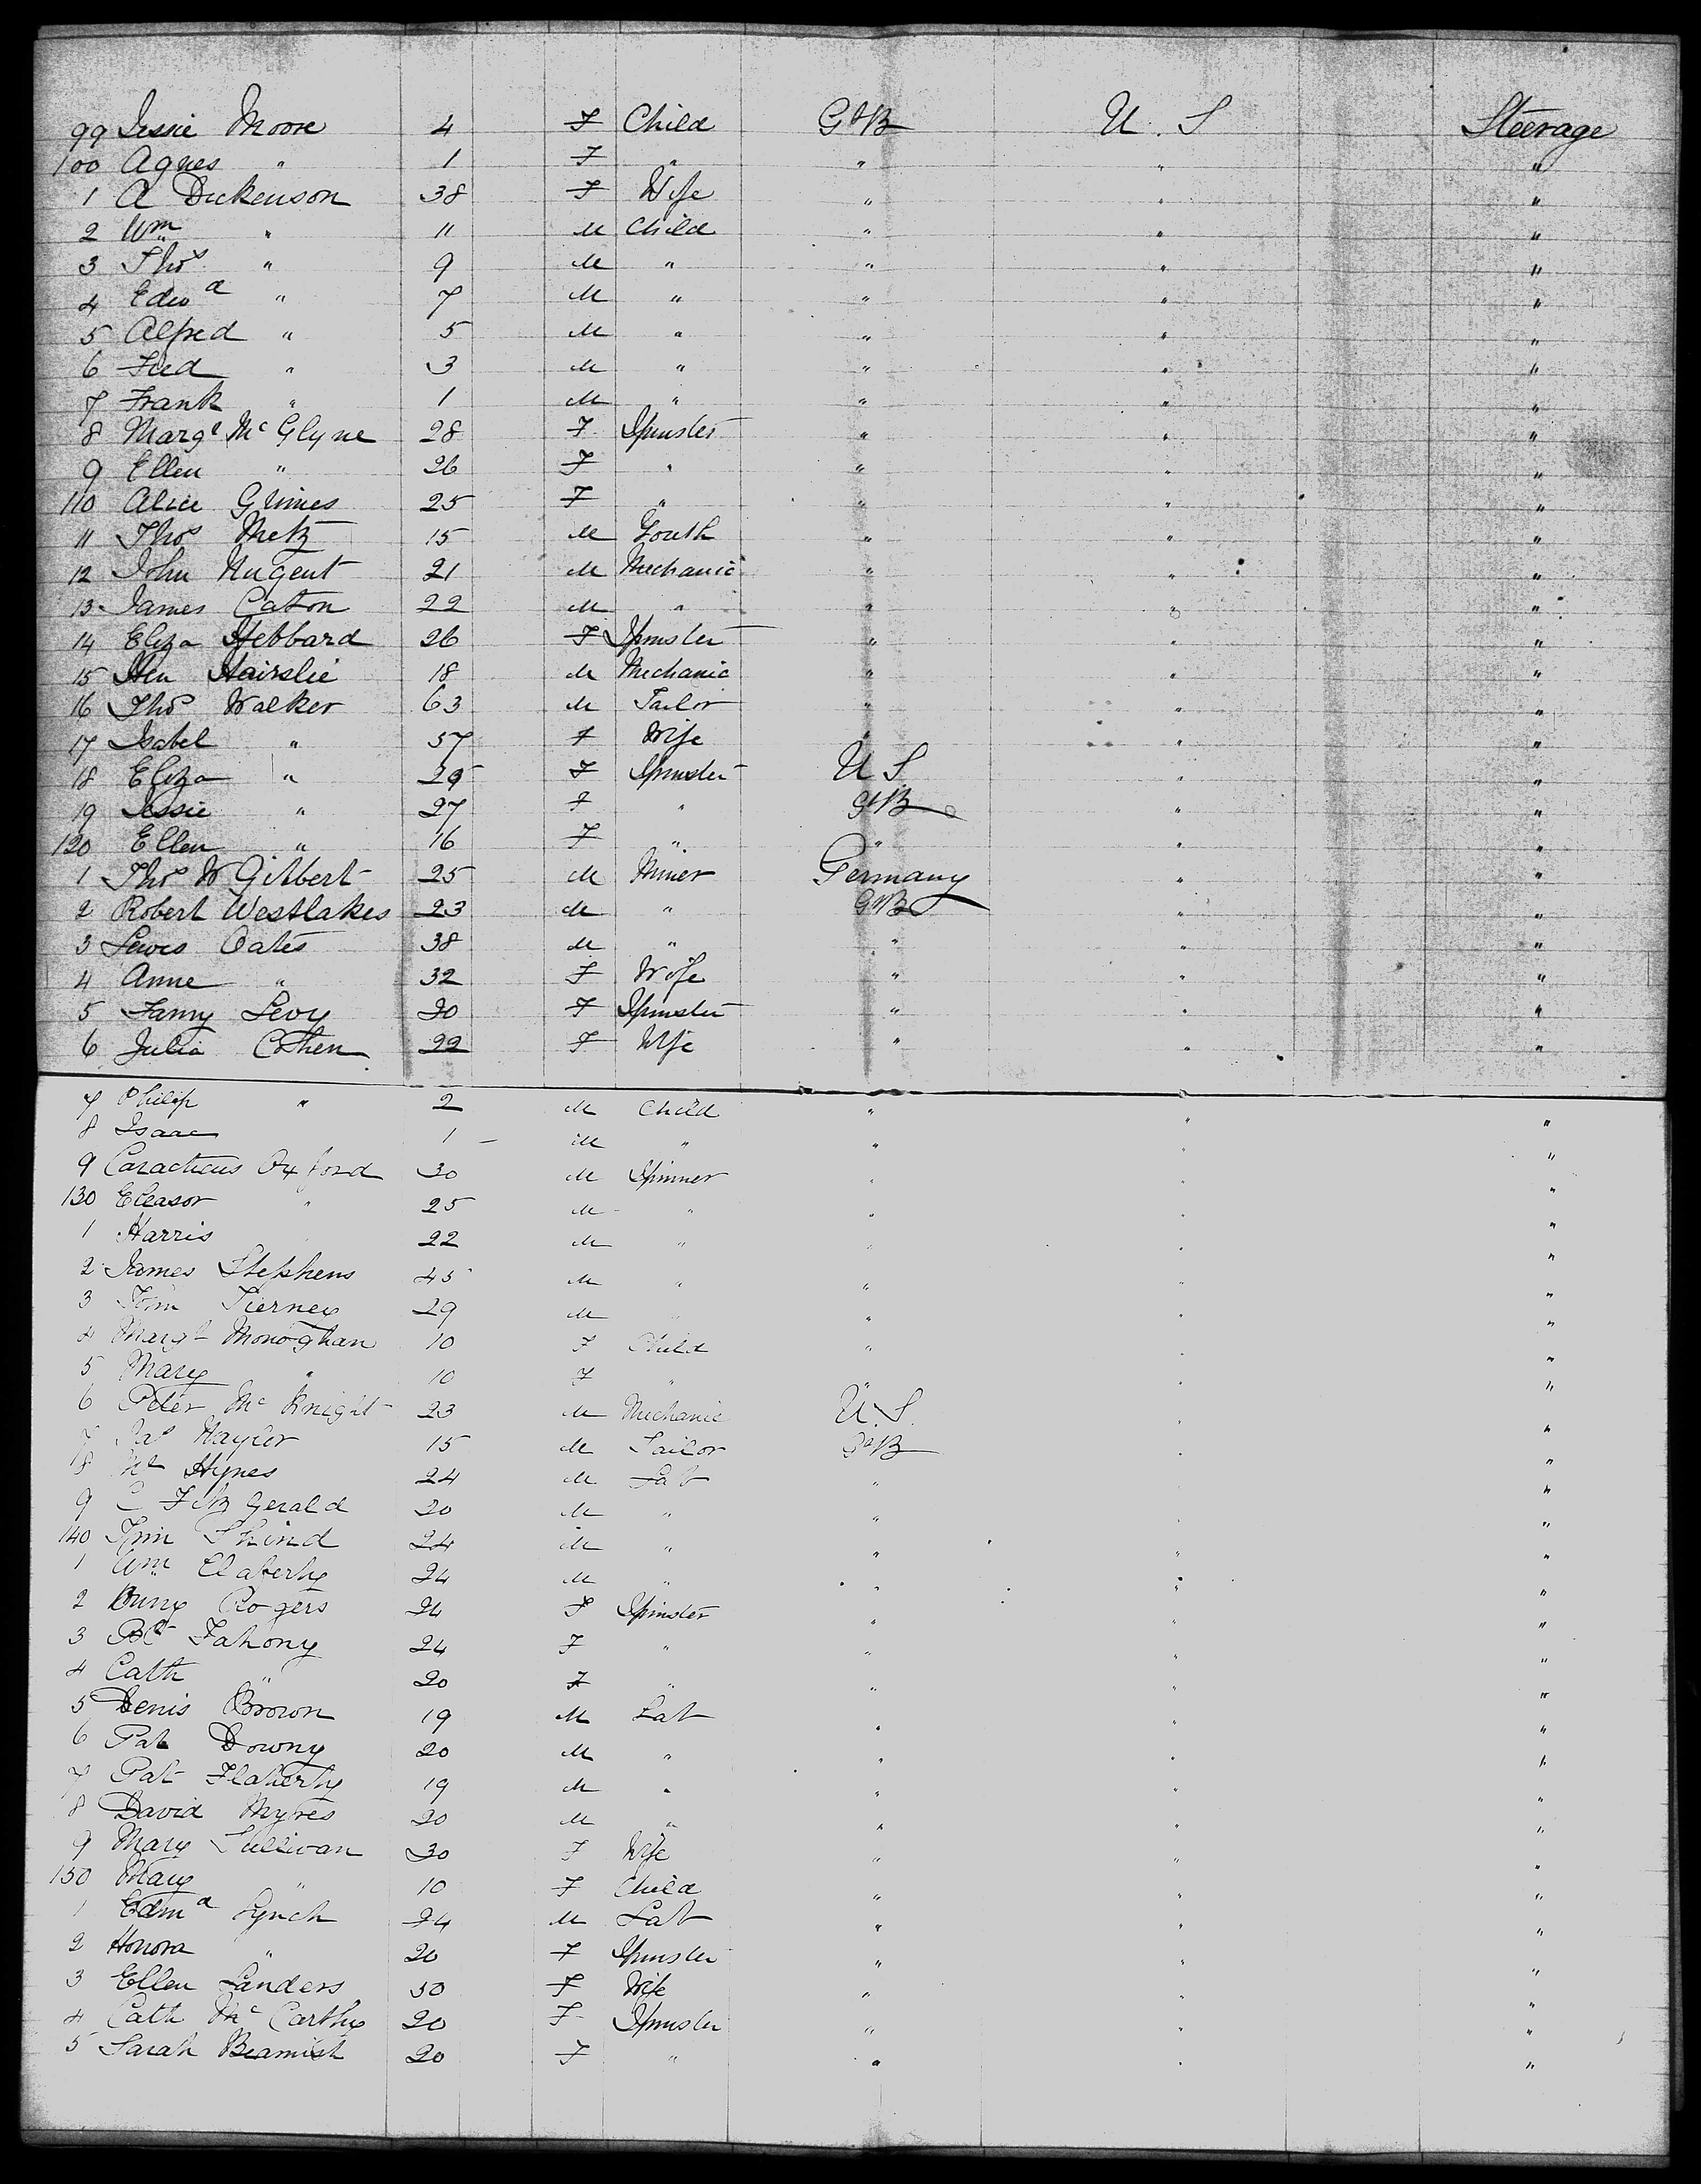 99 Jessie Moore 4 F Child Gt B U. S Steerage
100 Agnes " 1 F " " " "
1 A Dickenson 38 F Wife " " "
2 Wm " 11 M Child " " "
3 Thos " 9 M " " " "
4 Edwd " 7 M " " " "
5 Alfred " 5 M " " " "
6 Fred " 3 M " " " "
7 Frank " 1 M " " " "
8 Margt McGlyne 28 F Spinster " " "
9 Ellen " 26 F " " " "
110 Alice Grimes 25 F " " " "
11 Thos Metz 15 M Youth " " "
12 John Nugent 21 M Mechanic " " "
13 James Caton 22 M " " " "
14 Eliza Hebbard 26 F Spinster " " "
15 Hen Hairslie 18 M Mechanic " " "
16 Thos Walker 63 M Tailor " " "
17 Isabel " 57 F Wife " " "
18 Eliza " 29 F Spinster U S " "
19 Jessie " 27 F " Gt B " "
120 Ellen " 16 F " " " "
1 Thos W Gilbert 25 M Miner Germany " "
2 Robert Westlakes 23 M " Gt B " "
3 Lewis Oates 38 M " " " "
4 Anne " 32 F Wife " " "
5 Fanny Levy 30 F Spinster " " "
6 Julia Cohen 22 F Wife " " "
7 Philip " 2 M Child " " "
8 Isaac 1 M " " " "
9 Caracticus Oxford 30 M Spinner " " "
130 Eleasor " 25 M " " " "
1 Harris 22 M " " " "
2 James Stephens 45 M " " " "
3 Tierney 29 M " " " "
4 Margt Monoghan 10 F Child " " "
5 Mary " 10 F " " " "
6 Peter McKnight 23 M Mechanic U. S. " "
7 Jas Hayler 15 M Sailor Gt B " "
8 Hynes 24 M Lab " " "
9 C Fitzgerald 20 M " " " "
140 24 M " " " "
1 Wm Claferty 24 M " " " "
2 Rogers 24 F Spinster " " "
3 Fahony 24 F " " " "
4 Cath " 20 F " " " "
5 Denis Brown 19 M Lab " " "
6 Pat Downy 20 M " " " "
7 Pat Flaherty 19 M " " " "
8 David Myres 20 M " " " "
9 Mary Sullivan 30 F Wife " " "
150 Mary " 10 F Child " " "
1 Edmd Lynch 24 M Lab " " "
2 Honora " 20 F Spinster " " "
3 Ellen Landers 50 F Wife " " "
4 Cath McCarthy 20 F Spinster " " "
5 Sarah Beamish 20 F " " " "